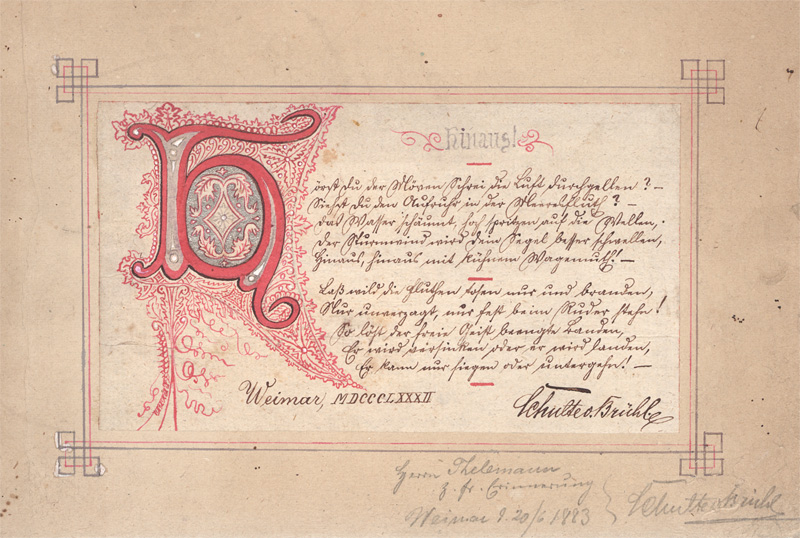 Hinaus!
Hörst du der Möven Schrei die Luft durchgellen? –
Siehst du den Aufruhr in der Meeresfluth? –
Das Wasser schäumt, hoch spritzen auf die Wellen,
Der Sturmwind wird dein Segel besser schwellen,
Hinaus, hinaus mit kühnem Wagemuth! –
Laß wild die Fluthen tosen nur und branden,
Nur unverzagt, nur fest beim Ruder stehn!
So löst der freie Geist beengte Banden,
Er wird versinken oder er wird landen,
Er kann nur siegen oder untergehn! –
Weimar, MDCCCLXXXII
Schulte v. Brühl
Herrn Thelemann
z. fr. Erinnerung
Weimar d. 20/6 1883
Schulte v. Brühl